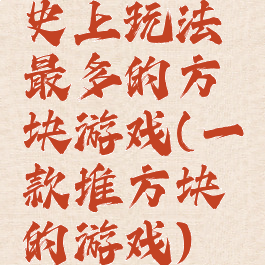 史上玩法
最多的方
块游戏(一
款堆方块
的游戏)